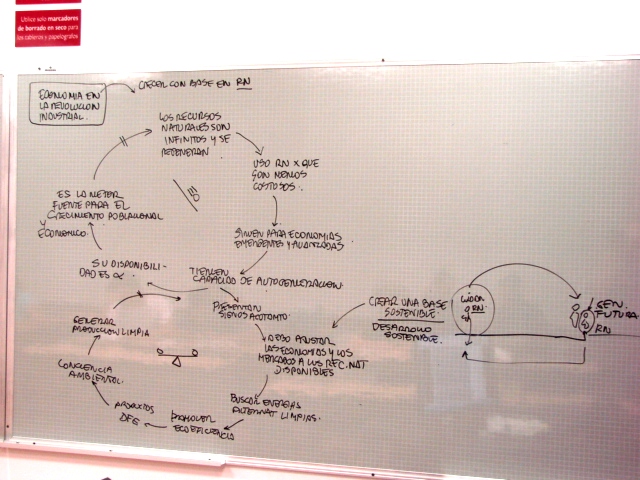 Utilice solo marcadores
de borrado en seco para
los tableros y papelógrafos
ECONOMIA EN
LA REVOLUCION
INDUSTRIAL.
CRECER CON BASE EN RN
LOS RECURSOS
NATURALES SON
INFINITOS Y SE
REGENERAN
USO RN X QUE
SON MENOS
COSTOSOS.
SIRVEN PARA ECONOMIAS
EMERGENTES Y AVANZADAS
TIENEN
CAPACIDAD DE AUTOGENERACION
SU DISPONIBILI-
DAD ES ∝
ES LA
FUENTE PARA EL
CRECIMIENTO POBLACIONAL
Y
ECONOMICO.
PRESENTAN
SIGNOS AGOTAMTO
DEBO AJUSTAR
LAS ECONOMIAS Y LOS
MERCADOS A LOS REC. NAT
DISPONIBLES
BUSCAR ENERGIAS
ALTERNAT LIMPIAS.
PROMOVER
ECOEFICIENCIA
PRODUCTOS
CONCIENCIA
AMBIENTAL.
GENERAR
PRODUCCION LIMPIA
CREAR UNA BASE
SOSTENIBLE.
DESARROLLO
SOSTENIBLE.
RN
GEN.
FUTURA
RN